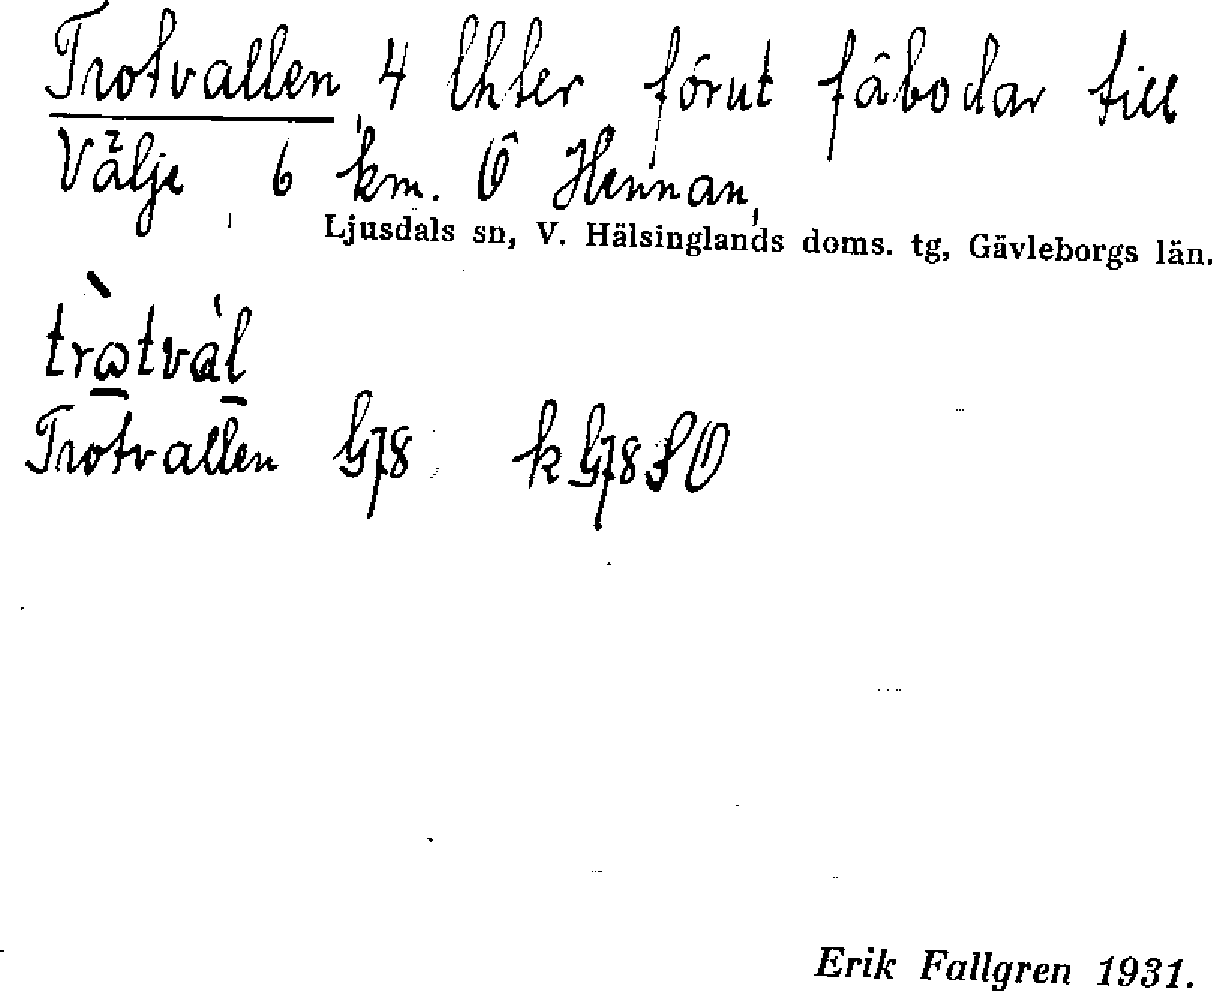 Trotvallen, 4 lhter förut fäbodar till
Välje, 6 km. Ö Hennan,
Ljusdals sn, V. Hälsinglands doms. tg, Gävleborgs län.
Trotvallen
Erik Fallgren 1931.